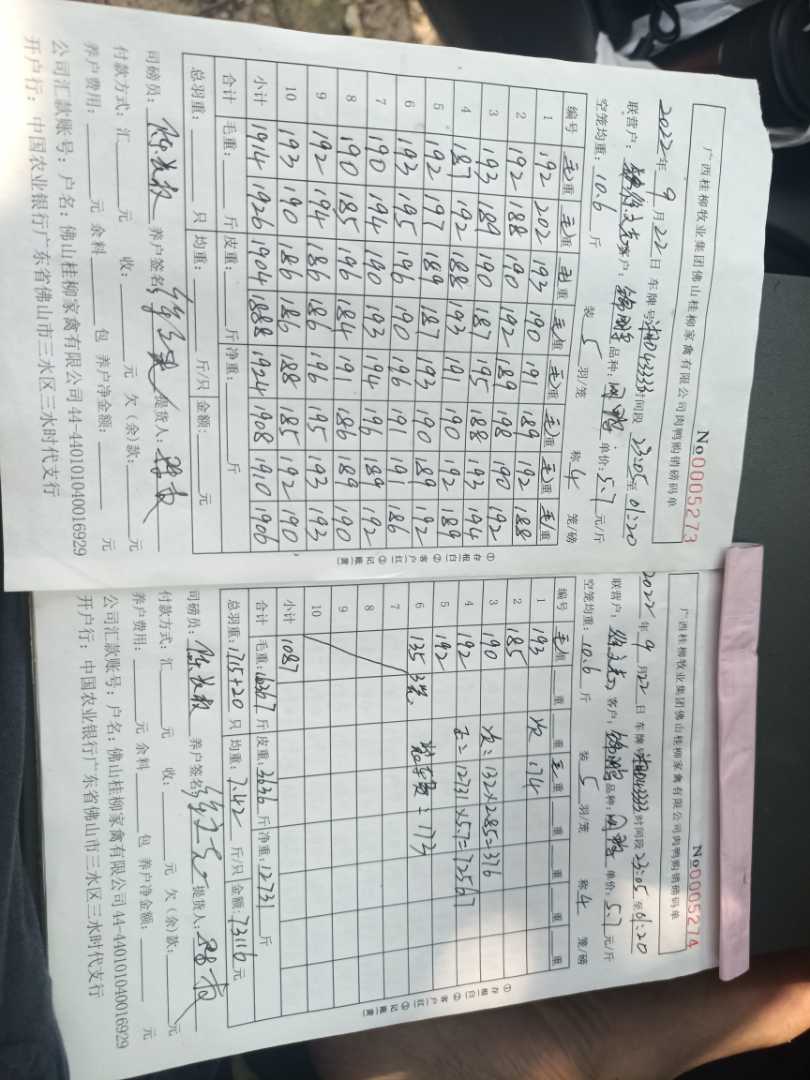 广西桂柳牧业集团佛山桂柳家禽有限公司肉鸭购销磅码单
No0005273
2022年9月22日 车牌号 时间段 23:05至01:20
联营户: 客户: 锦鹏 品种: 单价: 5.7元/斤
空笼均重: 10.6 斤 装 5 羽/笼 称 4 笼/磅
编号 毛重 毛重 毛重 毛重 毛重 毛重 毛重 毛重
1 192 202 193 190 191 189 192 188
2 192 188 190 192 189 198 190 192
3 193 189 190 187 195 188 193 194
4 187 192 188 193 191 190 192 189
5 192 197 189 187 193 190 189 192
6 193 195 196 190 196 191 191 186
7 190 194 190 193 194 196 189 192
8 190 185 196 184 191 186 189 190
9 192 194 186 186 196 195 193 193
10 193 190 186 186 188 185 192 190
小计 1914 1926 1904 1888 1924 1908 1910 1906
合计 毛重: 斤 皮重: 斤 净重: 斤
总羽重: 只 均重: 斤/只 金额: 元
①存根白 ②客户红 ③记账黄
司磅员: 养户签名: 提货人:
付款方式: 汇 元 收: 元 欠(余)款: 元
养户费用: 元 余料 包 养户净金额: 元
公司汇款账号: 户名: 佛山桂柳家禽有限公司 44-440101040016929
开户行: 中国农业银行广东省佛山市三水区三水时代支行
广西桂柳牧业集团佛山桂柳家禽有限公司肉鸭购销磅码单
No0005274
2022年9月22日 车牌号 时间段 23:05至01:20
联营户: 客户: 锦鹏 品种: 单价: 5.7元/斤
空笼均重: 10.6 斤 装 5 羽/笼 称 4 笼/磅
编号 毛重 重 重 毛重 重 重 重 重
1 193 次:74
2 185
3 190 次=132×2.85=376
4 192 正=12731×5.7=72567
5 192
6 135 3笼 =173
7
8
9
10
小计 1087
合计 毛重: 16367 斤 皮重: 3636 斤 净重: 12731 斤
总羽重: 1715+20 只 均重: 7.42 斤/只 金额: 73116 元
①存根白 ②客户红 ③记账黄
司磅员: 养户签名: 提货人:
付款方式: 汇 元 收: 元 欠(余)款: 元
养户费用: 元 余料 包 养户净金额: 元
公司汇款账号: 户名: 佛山桂柳家禽有限公司 44-440101040016929
开户行: 中国农业银行广东省佛山市三水区三水时代支行